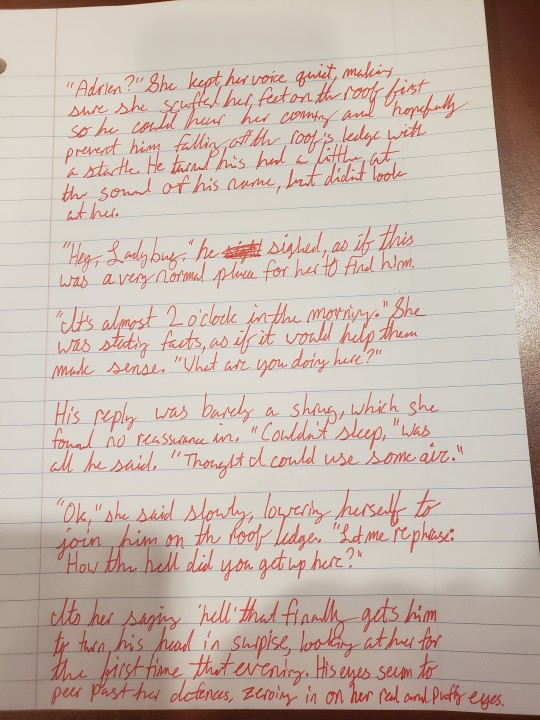 "Adrien?" She kept her voice quiet, making
sure she scuffed her feet on the roof first
so he could hear her coming and hopefully
prevent him falling off the roof's ledge with
a startle. He turned his head a little at
the sound of his name, but didn't look
at her.
"Hey, Ladybug." he sighed, as if this
was a very normal place for her to find him.
"It's almost 2 o'clock in the morning." She
was stating facts, as if it would help them
make sense. "What are you doing here?"
His reply was barely a shrug, which she
found no reassurance in. "Couldn't sleep," was
all he said. "Thought I could use some air."
"Ok," she said slowly, lowering herself to
join him on the roof ledge. "Let me rephrase:
How the hell did you get up here?"
Its her saying 'hell' that finally gets him
to turn his head in surpise, looking at her for
the first time that evening. His eyes seem to
peer past her defences, zeroing in on her red and puffy eyes.